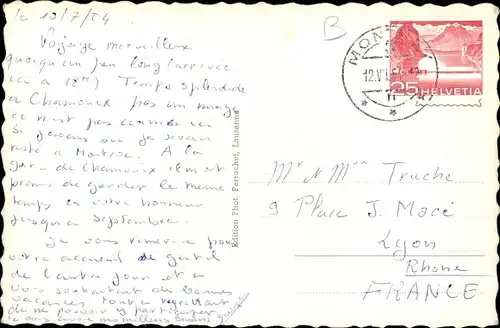 le 10/7/54
Voyage merveilleux
quoiqu'un peu long (arrivée
à 18H) Temps splendide
à Chamonix pas un nuage
ce n'est pas comme ici
Si j'avais su je serais
resté à Montroc. A la
gare de Chamonix ils m'ont
promis de garder le même
temps en votre honneur
jusqu'en Septembre.
Je vous remercie pour
votre accueil si gentil
de l'autre jour et en
vous souhaitant de bonnes
vacances tout en regrettant
de ne pouvoir y participer
je vous envoie mes meilleurs baisers
B
MONT
12.V
25 HELVETIA
Edition Phot. Perrochet, Lausanne
Mr & Mme Truche
9 Place J. Macé
Lyon
Rhone
FRANCE